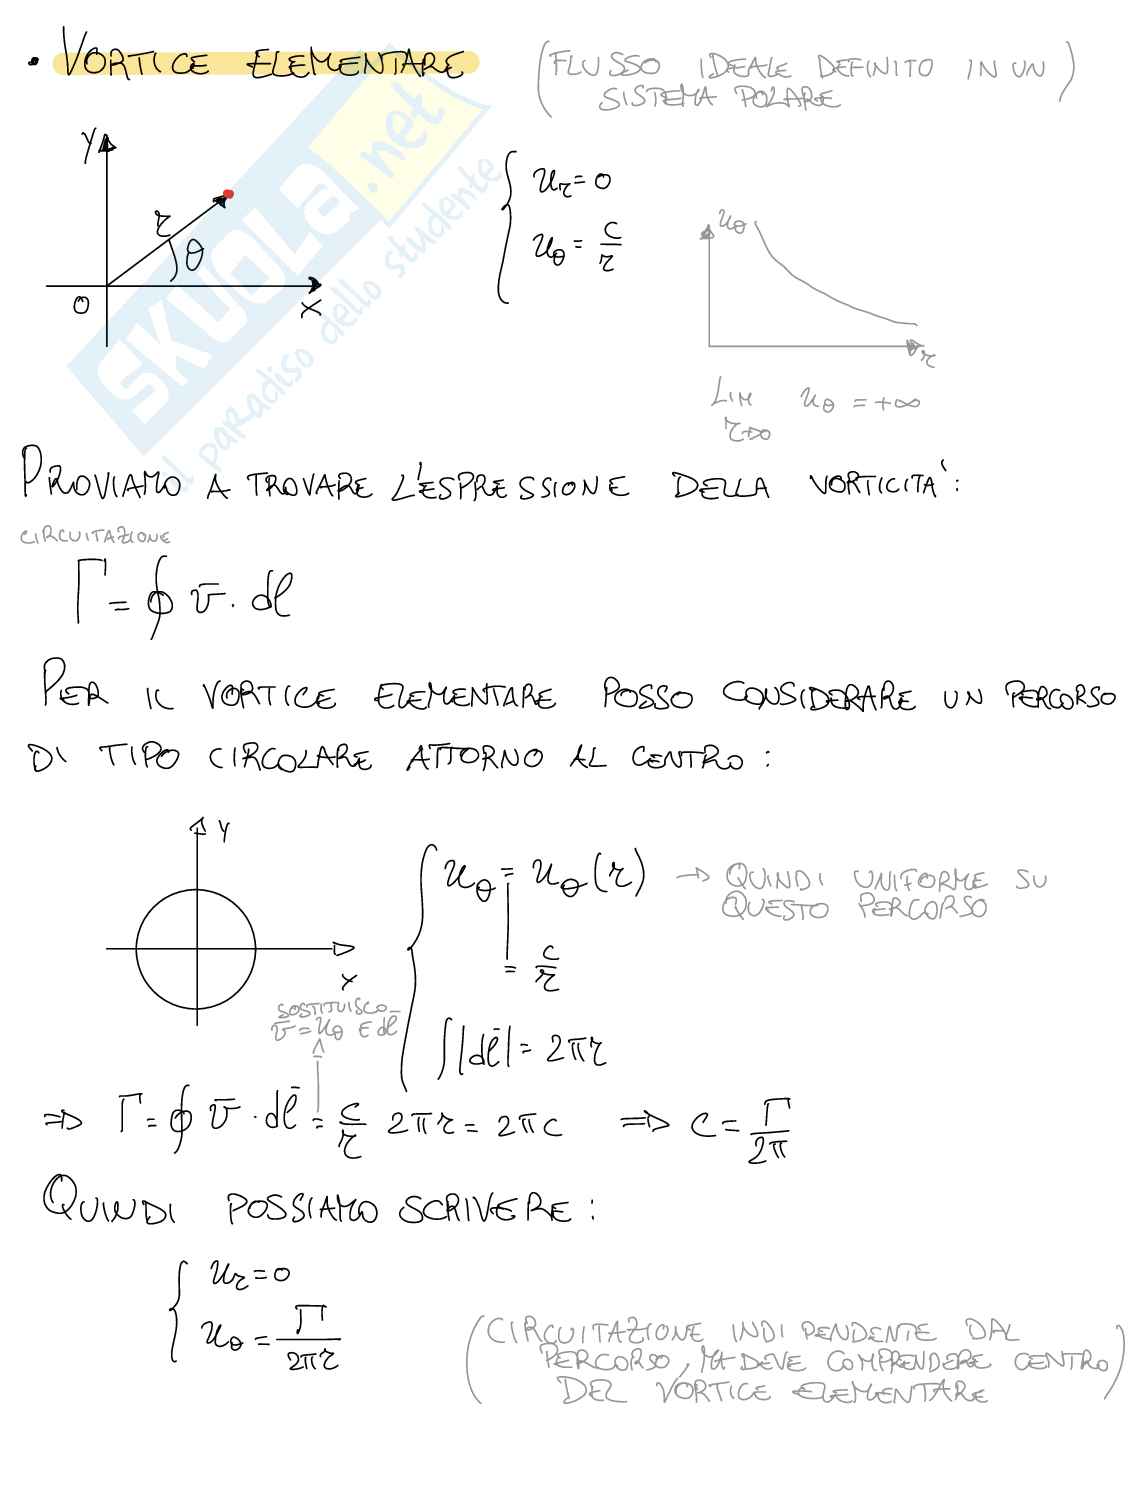 • VORTICE ELEMENTARE (FLUSSO IDEALE DEFINITO IN UN
SISTEMA POLARE)
Y
r
θ
O
X
u_r = 0
u_θ = c/r
u_θ
r
LIM u_θ = +∞
r→0
SKUOLA.net
il paradiso dello studente
PROVIAMO A TROVARE L'ESPRESSIONE DELLA VORTICITA':
CIRCUITAZIONE
Γ = ∮ v̄ · dl
PER IL VORTICE ELEMENTARE POSSO CONSIDERARE UN PERCORSO
DI TIPO CIRCOLARE ATTORNO AL CENTRO:
Y
X
u_θ = u_θ(r) → QUINDI UNIFORME SU
QUESTO PERCORSO
= c/r
∫|dl̄| = 2πr
SOSTITUISCO
v̄ = u_θ E dl̄
⇒ Γ = ∮ v̄ · dl̄ = c/r 2πr = 2πc ⇒ c = Γ/2π
QUINDI POSSIAMO SCRIVERE:
u_r = 0
u_θ = Γ/2πr
(CIRCUITAZIONE INDIPENDENTE DAL
PERCORSO, MA DEVE COMPRENDERE CENTRO
DEL VORTICE ELEMENTARE)